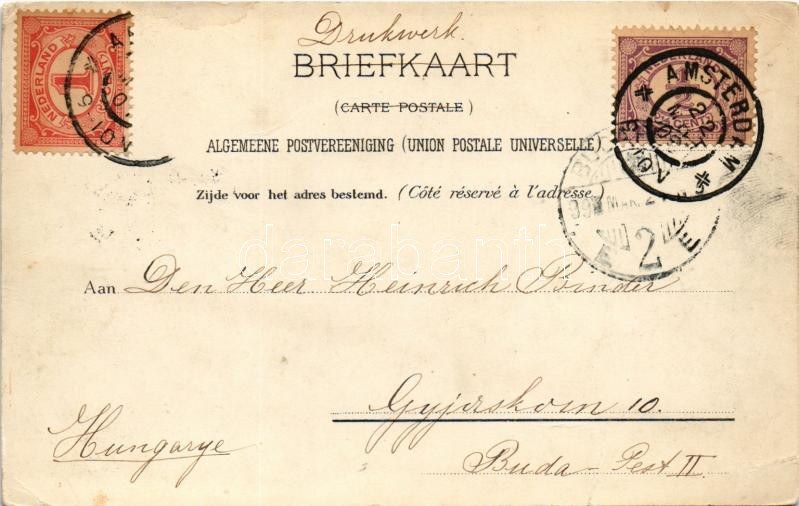 Drukwerk.
BRIEFKAART
(CARTE POSTALE)
ALGEMEENE POSTVEREENIGING (UNION POSTALE UNIVERSELLE)
Zijde voor het adres bestemd. (Côté réservé à l'adresse)
NEDERLAND
1
CENT
NEDERLAND
CENT
AMSTERDAM
22
MRT
NOV
2
Aan Den Heer Heinrich Binder
Gyjarskorn 10.
Hungarye
Buda-Pest II
darabanth